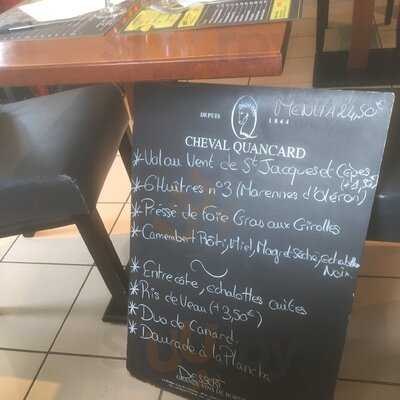 CHEVAL QUANCARD
DEPUIS 1844
MENU A 24,50€
CHEVAL QUANCARD
* Vol au Vent de St Jacques et Cèpes
(+1,50€)
* 6 Huîtres n°3 (Marennes d'Oléron)
* Préssé de Foie Gras aux Girolles
* Camembert Rôti, Miel, Magret Séché, échalotte
Noix
* Entrecôte, echalottes cuites
* Ris de Veau (+3,50€)
* Duo de Canard
* Daurade à la Plancha
Dessert